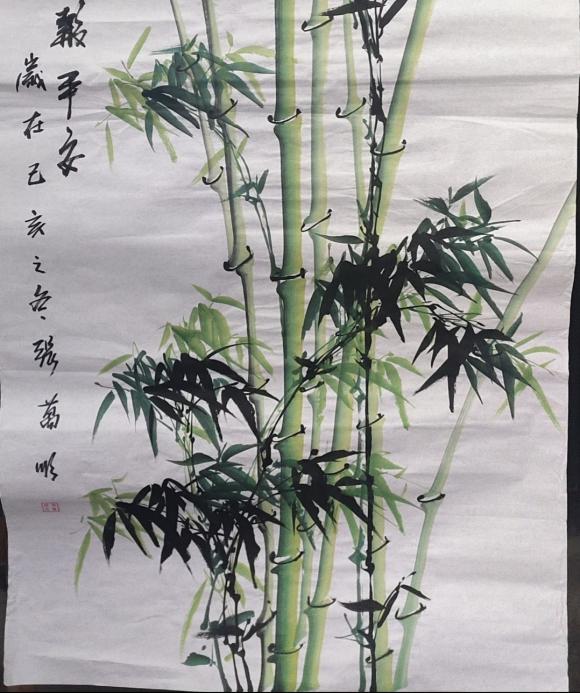 報平安
歲在己亥之冬張萬順